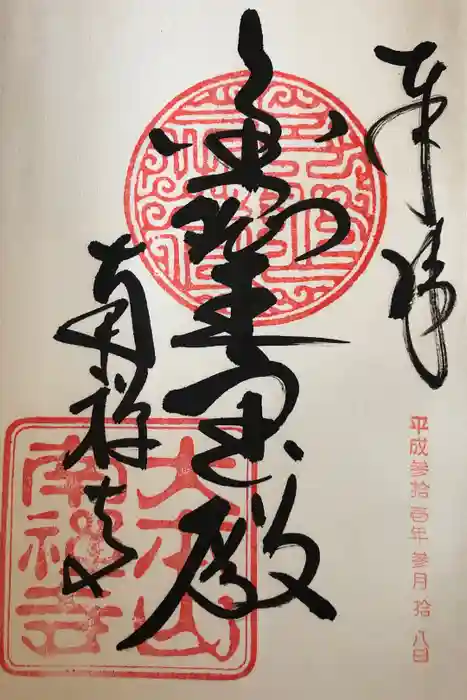 奉拝
平成参拾壱年 参月 拾八日
金剛王宝殿
南禅寺
大本山
南禅寺